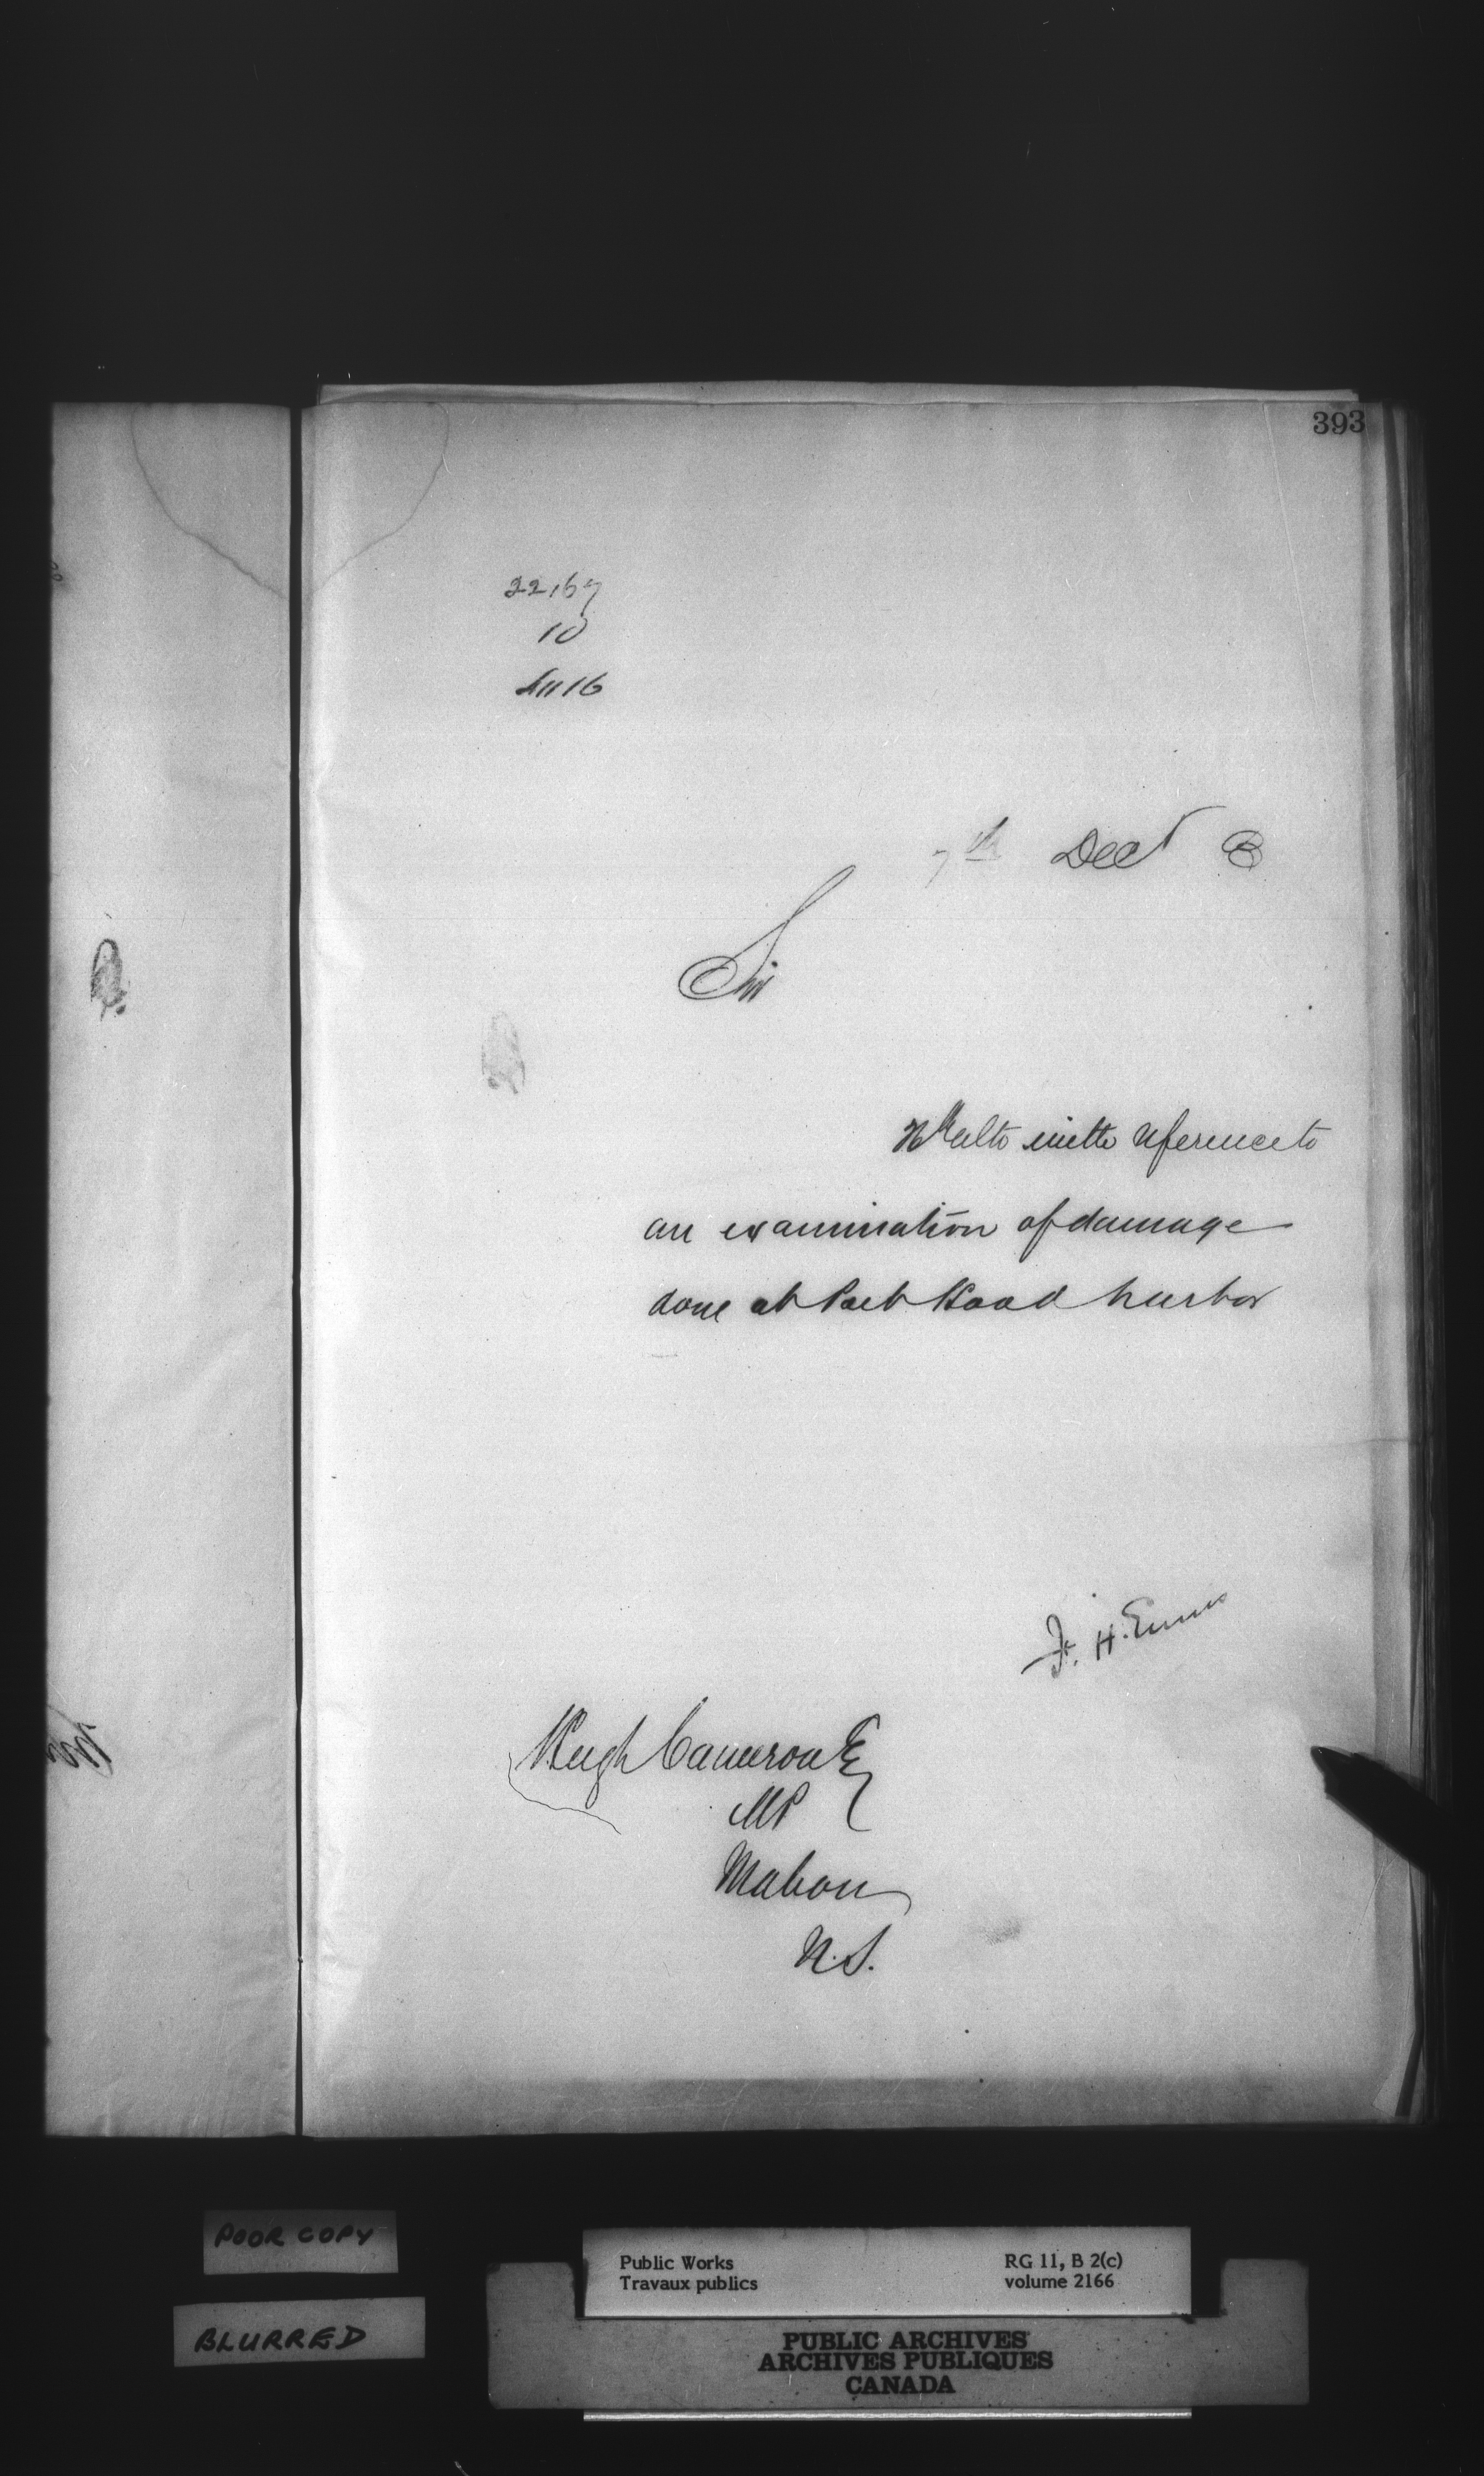 393
22167
10
7th Dec
Sir
with reference to
an examination of damage
done at Port Hood harbor
F. H. Ennis
Hugh Cameron E
MP
Mabou
N.S.
POOR COPY
BLURRED
Public Works
Travaux publics
RG 11, B 2(c)
volume 2166
PUBLIC ARCHIVES
ARCHIVES PUBLIQUES
CANADA